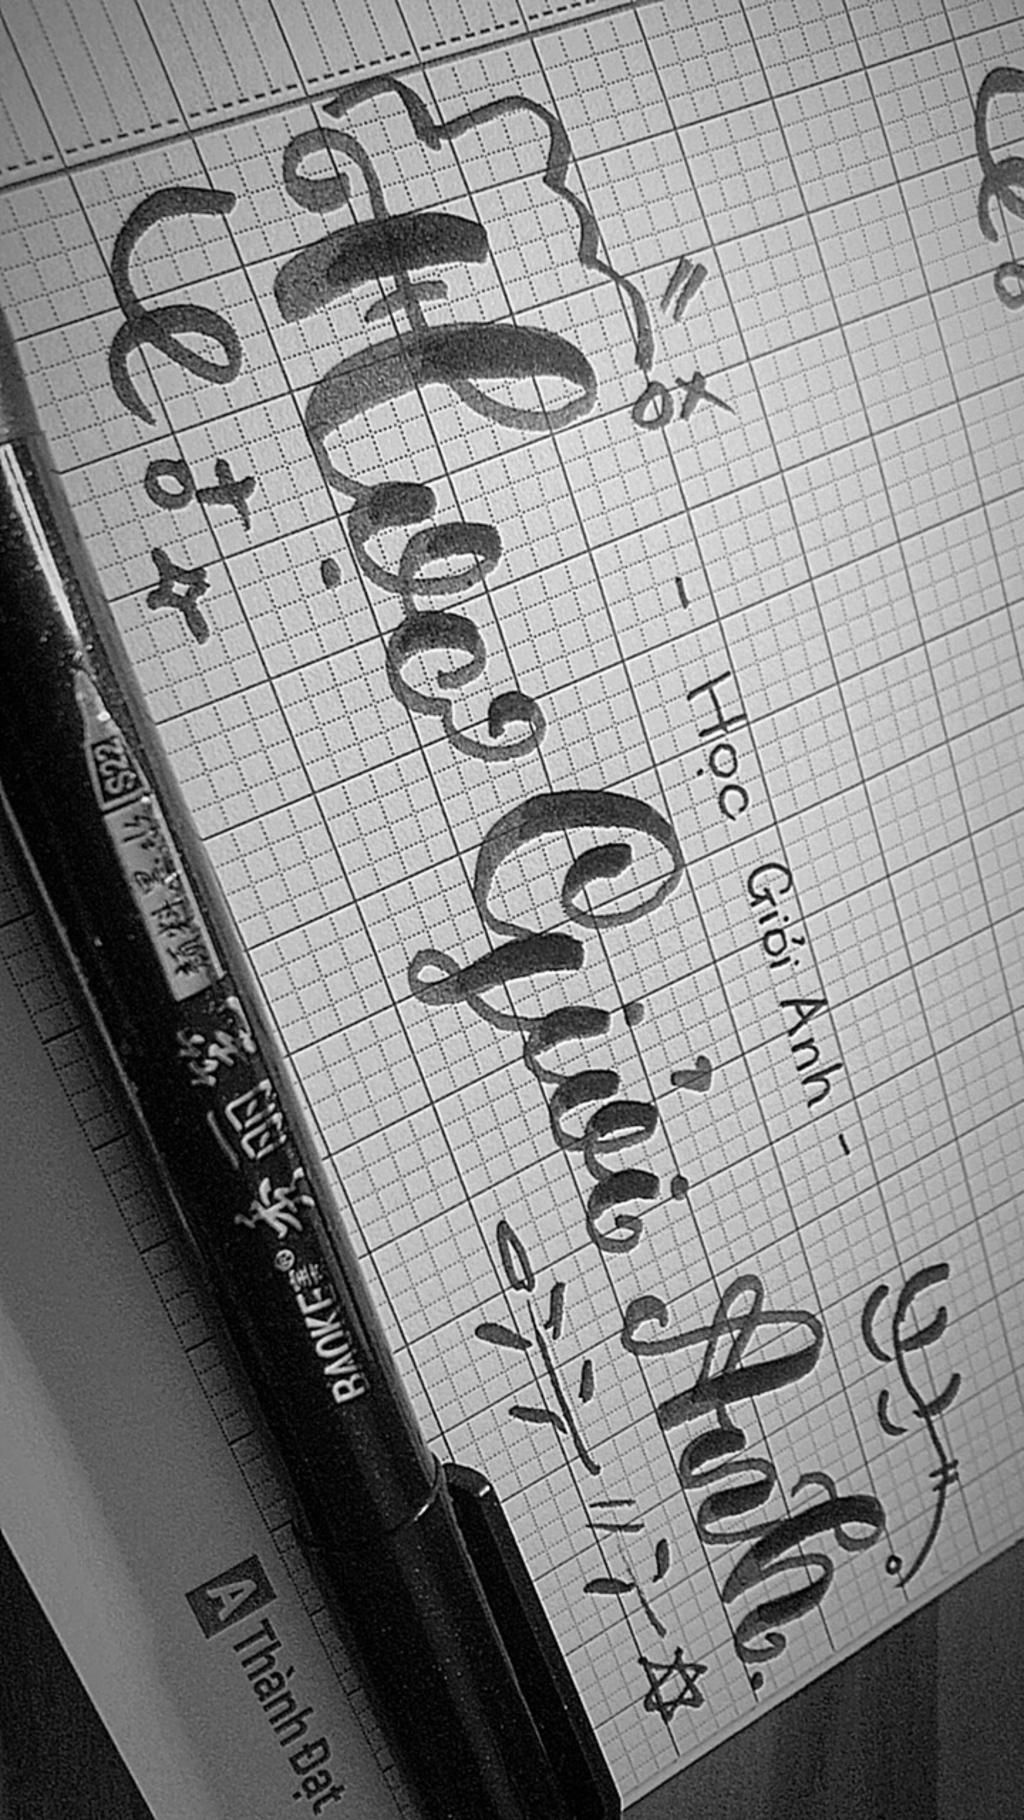 Học Giỏi Anh.
- Học Giỏi Anh -
S22
BAOKE®
A Thành Đạt